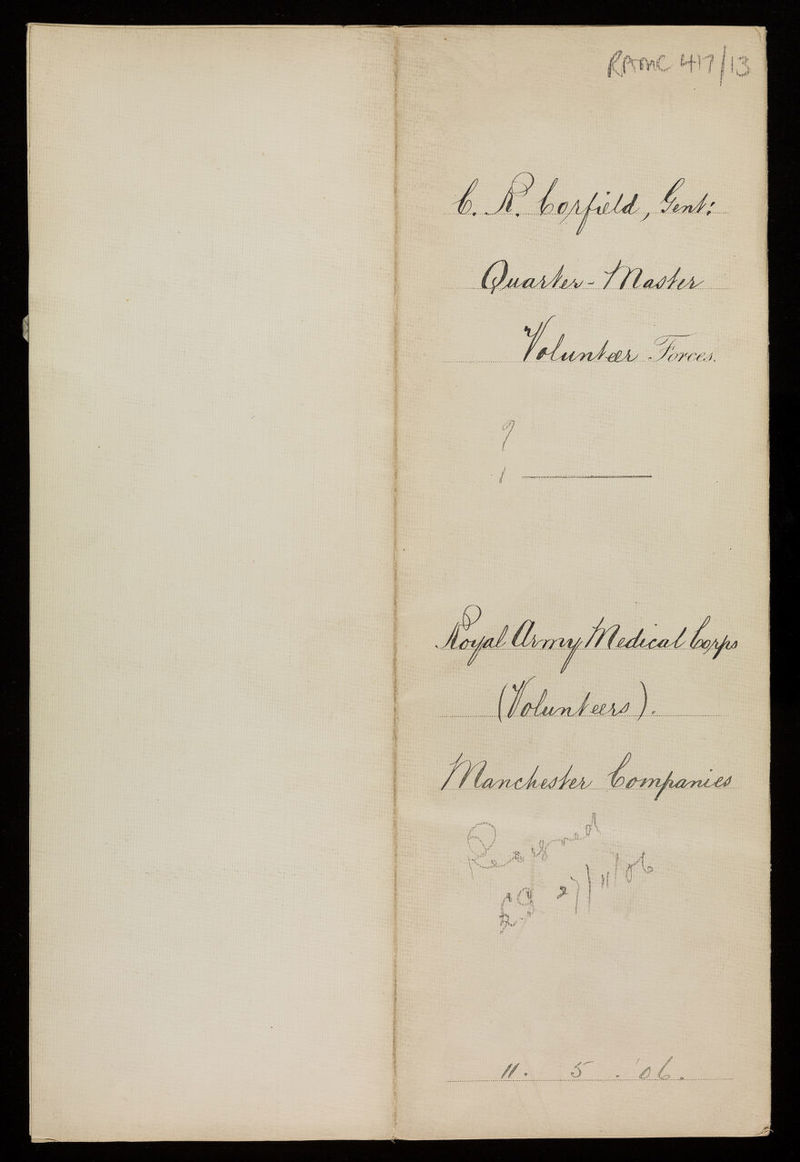 RAMC 417/13
C. R. Corfield, Gent:
Quarter-Master
Volunteer Forces.
?
Royal Army Medical Corps
(Volunteers).
Manchester Companies
Resigned
27/11/06
11. 5. '06.